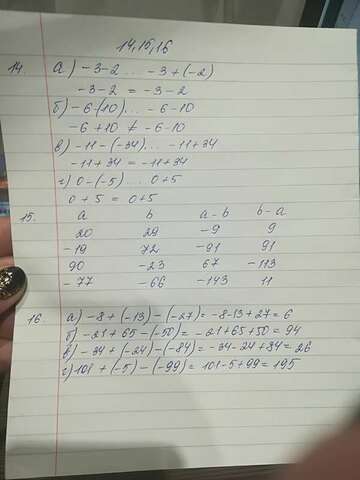 14, 15, 16
14. а) -3-2 ... -3+(-2)
-3-2 = -3-2
б) -6-(10) ... -6-10
-6+10 ≠ -6-10
в) -11-(-34) ... -11+34
-11+34 = -11+34
г) 0-(-5) ... 0+5
0+5 = 0+5
15. a b a-b b-a
20 29 -9 9
-19 72 -91 91
90 -23 67 -113
-77 -66 -143 11
16. а) -8+(-13)-(-27)= -8-13+27=6
б) -21+65-(-50)= -21+65+50=94
в) -34+(-24)-(-84)= -34-24+84=26
г) 101+(-5)-(-99)= 101-5+99=195